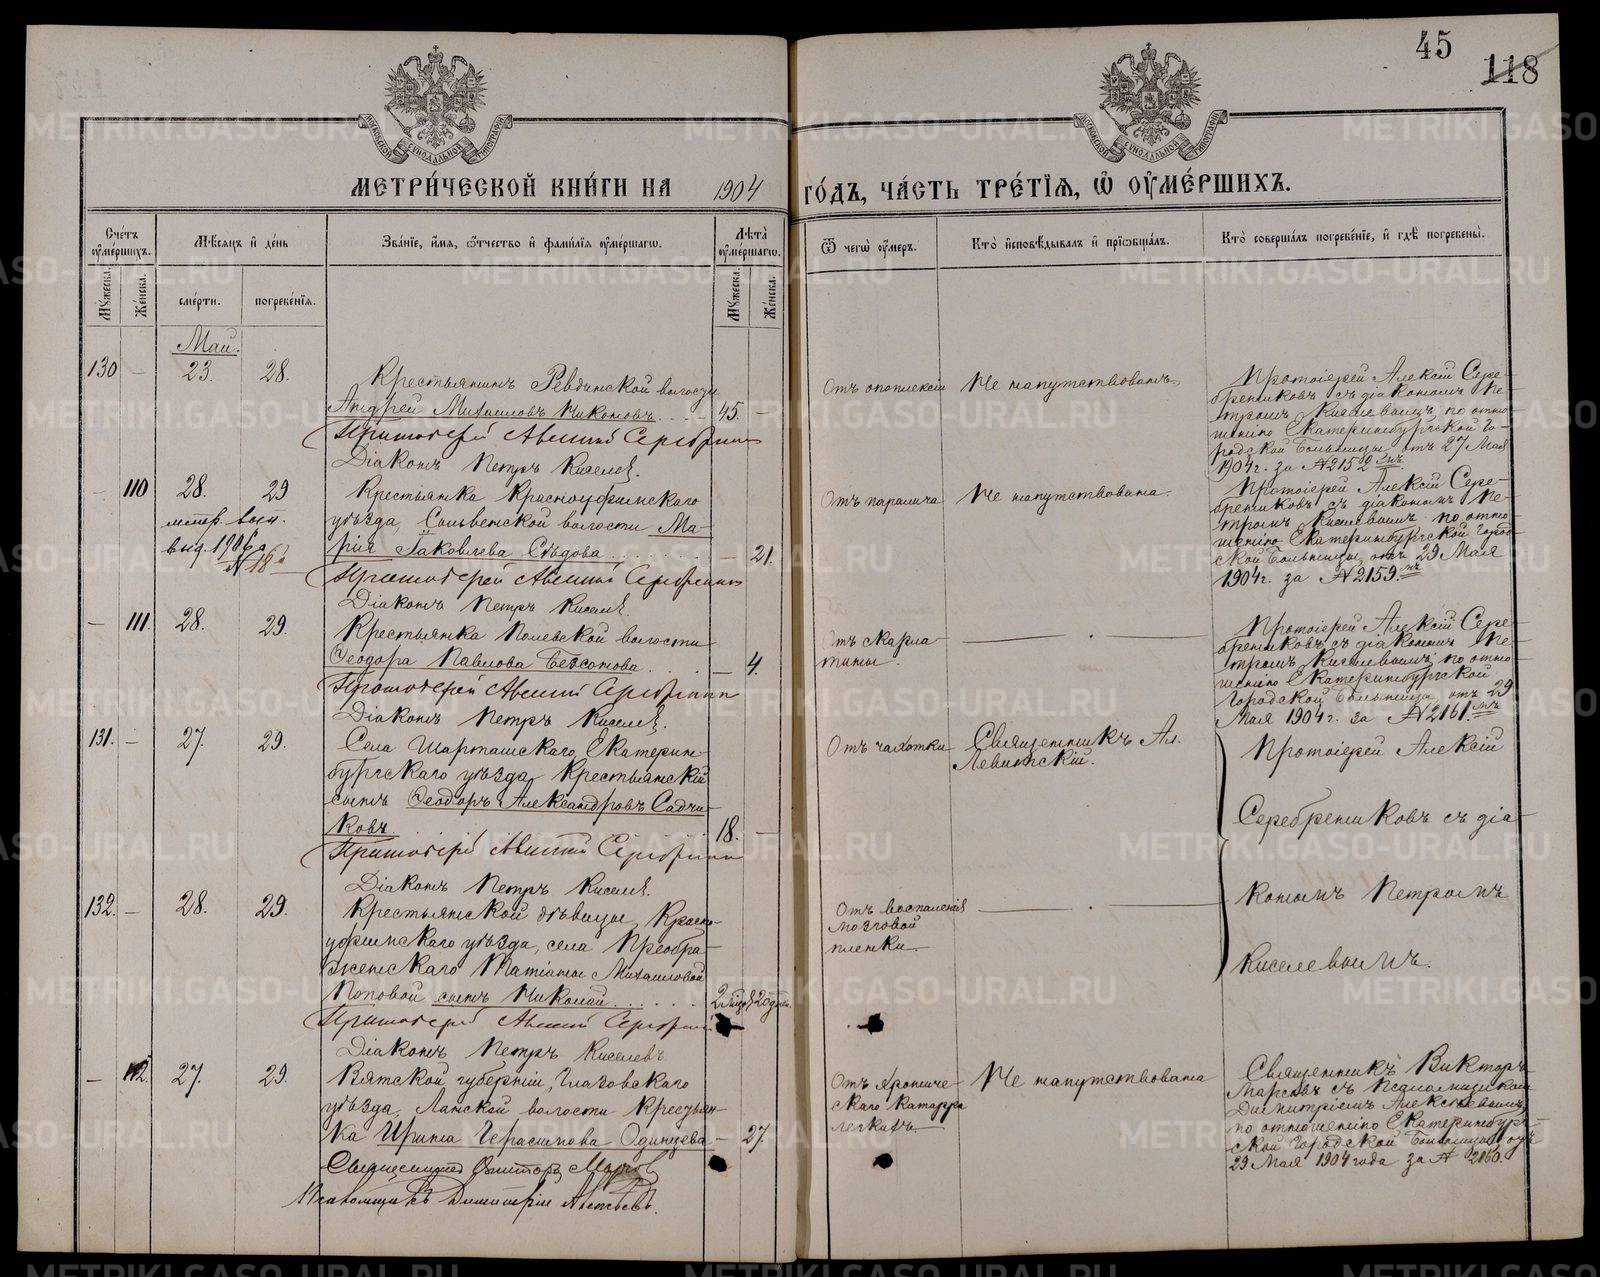 45
118
МЕТРИ́ЧЕСКОЙ КНИ́ГИ НА 1904 ГО́ДЪ, ЧА́СТЬ ТРЕ́ТІѦ, Ѽ ОУ҆МЕ́РШИХЪ.
Сче́тъ оу҆ме́ршихъ.
Мꙋ́жеска.
Же́нска.
Мѣ́сѧцъ и҆ де́нь
сме́рти.
погребе́нїѧ.
Зва́нїе, и҆́мѧ, ѻ҆́тчество и҆ фами́лїѧ оу҆ме́ршагѡ.
Лѣ́та оу҆ме́ршагѡ.
Мꙋ́жеска.
Же́нска.
Ѿ чегѡ̀ оу҆́меръ.
Кто̀ и҆сповѣ́дывалъ и҆ прїѡбща́лъ.
Кто̀ соверша́лъ погребе́нїе, и҆ гдѣ̀ погребены̀.
Май.
130 — 23. 28.
Крестьянинъ Ревдинской волости
Андрей Михаиловъ Никоновъ . . . 45. —
Протоіерей Алексій Серебрениковъ
Діаконъ Петръ Киселевъ.
Отъ апоплексіи
Не напутствованъ.
Протоіерей Алексій Сере-
брениковъ съ діакономъ Пе-
тромъ Киселевымъ, по отно-
шенію Екатеринбургской Го-
родской Больницы отъ 27 Мая
1904 г. за № 2152 мъ.
— 110 28. 29
метр. вып.
выд. 1906 г.
№ 18
Крестьянка Красноуфимскаго
уѣзда, Сылвенской волости Ма-
рія Іаковлева Сѣдова . . . . . — 21.
Протоіерей Алексій Серебрениковъ
Діаконъ Петръ Киселевъ.
Отъ паралича
Не напутствована.
Протоіерей Алексій Сере-
брениковъ съ діакономъ Пе-
тромъ Киселевымъ по отно-
шенію Екатеринбургской Город-
ской Больницы, отъ 29 Мая
1904 г. за № 2159. мъ
— 111. 28. 29.
Крестьянка Полевской волости
Ѳеодора Павлова Безсонова . . — 4.
Протоіерей Алексій Серебрениковъ
Діаконъ Петръ Киселевъ.
Отъ скарла-
тины.
Протоіерей Алексій Сере-
брениковъ съ діакономъ Пе-
тромъ Киселевымъ, по отно-
шенію Екатеринбургской
Городской Больницы, отъ 29
Мая 1904 г. за № 2161. мъ
131. — 27. 29.
Села Шарташскаго, Екатерин-
бургскаго уѣзда, Крестьянскій
сынъ Ѳеодоръ Александровъ Садчи-
ковъ. . . . . 18. —
Протоіерей Алексій Серебрениковъ
Діаконъ Петръ Киселевъ.
Отъ чахотки
Священникъ Ал.
Левитскій.
Протоіерей Алексій
Серебрениковъ съ діа-
кономъ Петромъ
Киселевымъ.
132. — 28. 29.
Крестьянской дѣвицы, Красно-
уфимскаго уѣзда, села Преобра-
женскаго Татіаны Михаиловой
Поповой сынъ Николай . . . . . . 2 мѣс. 20 дн.
Протоіерей Алексій Серебрениковъ
Діаконъ Петръ Киселевъ
Отъ воспаленія
мозговой
пленки.
— 112. 27. 29.
Вятской губерніи, Глазовскаго
уѣзда, Ланской волости Крестьян-
ка Ирина Герасимова Одинцева — 27.
Священникъ Викторъ Марсовъ
Псаломщикъ Димитрій Алексѣевъ.
Отъ хрониче-
скаго катарра
легкихъ.
Не напутствована
Священникъ Викторъ
Марсовъ съ Псаломщикомъ
Димитріемъ Алексѣевымъ,
по отношенію Екатеринбург-
ской Городской Больницы отъ
29 Мая 1904 года за № 2160.
METRIKI.GASO-URAL.RU